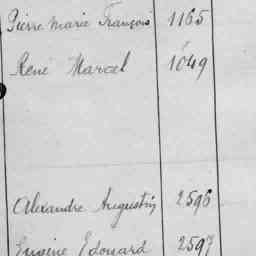 Pierre Marie François 1165
René Marcel 1049
Alexandre Augustin 2596
Eugène Edouard 2597